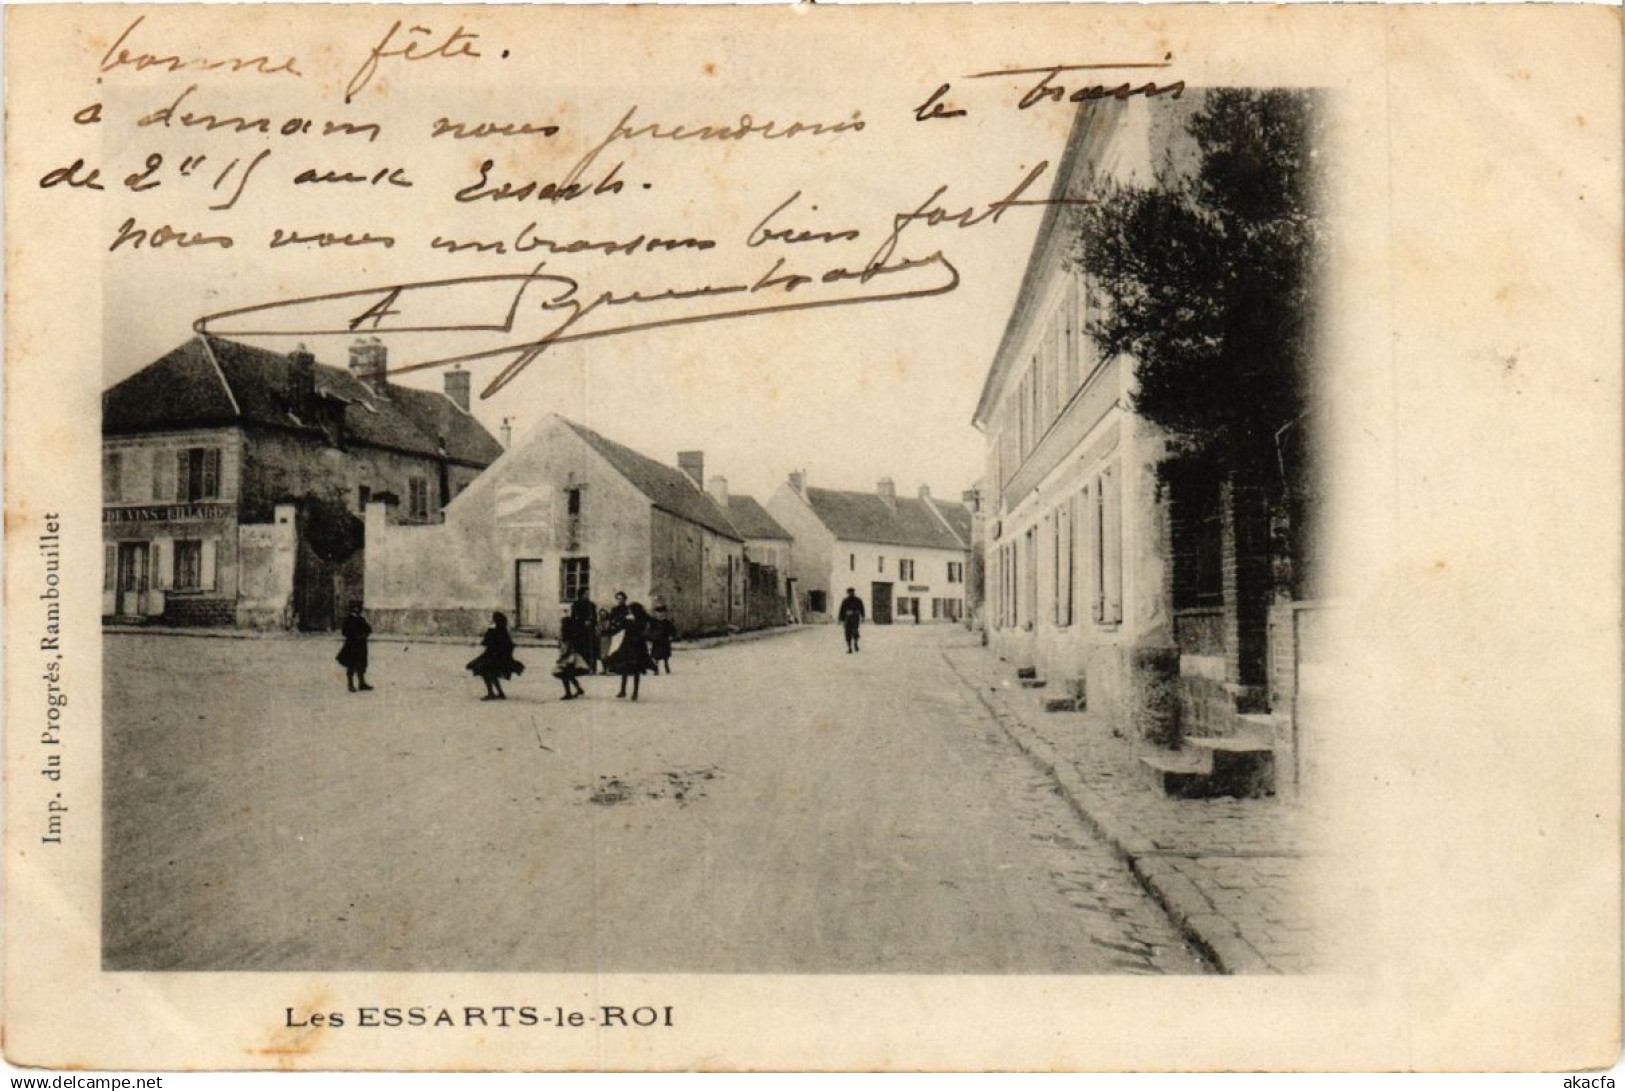 bonne fête.
à demain nous prendrons le train
de 2" 15 aux Essarts.
nous vous embrassons bien fort
A
DE VINS - BILLARD
Imp. du Progrès, Rambouillet
Les ESSARTS-le-ROI
www.delcampe.net
akacfa